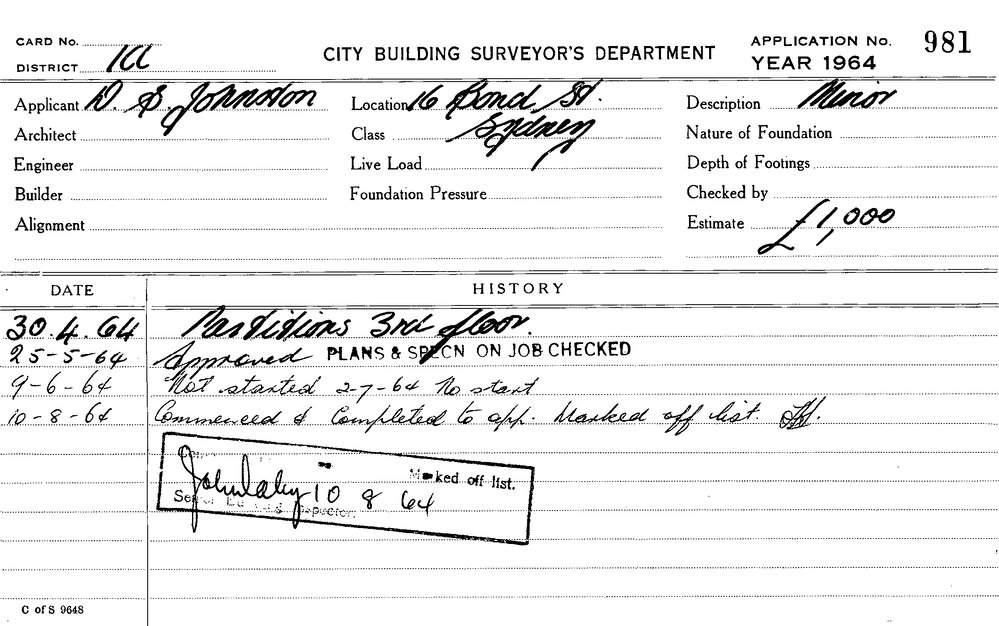 CARD No.
DISTRICT
CITY BUILDING SURVEYOR'S DEPARTMENT
APPLICATION No. 981
YEAR 1964
Applicant D. S. Johnston
Location 16 Bond St.
Sydney
Description Minor
Architect
Class
Nature of Foundation
Engineer
Live Load
Depth of Footings
Builder
Foundation Pressure
Checked by
Alignment
Estimate £1,000
DATE HISTORY
30.4.64 Partitions 3rd floor.
25-5-64 Approved PLANS & SPECN ON JOB CHECKED
9-6-64 Not started 2-7-64 No start
10-8-64 Commenced & Completed to app. Marked off list.
Marked off list.
10 8 64
Inspector.
C of S 9648